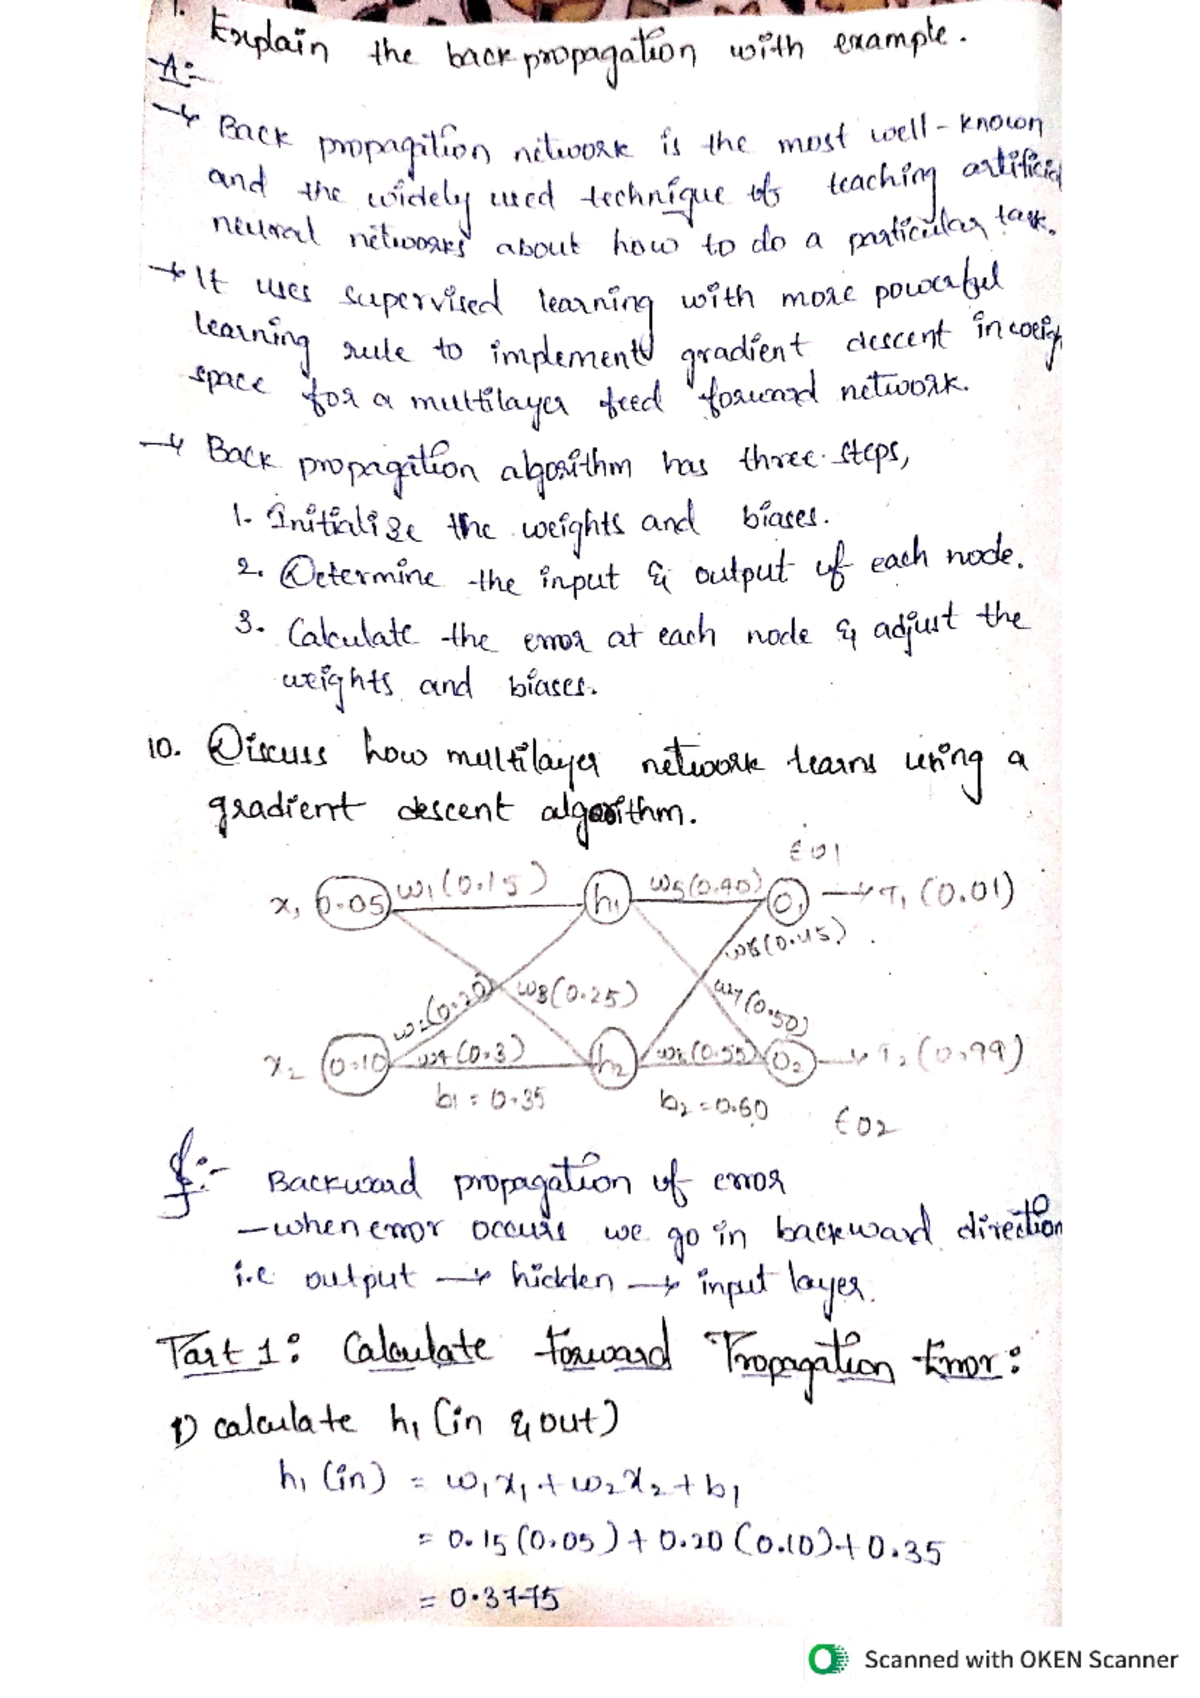 1. Explain the back propagation with example.
A:-
→ Back propagation network is the most well-known
and the widely used technique of teaching artificial
neural networks about how to do a particular task.
→ It uses supervised learning with more powerful
learning rule to implement gradient descent in weigh
space for a multilayer feed forward network.
→ Back propagation algorithm has three steps,
1. Initialize the weights and biases.
2. Determine the input & output of each node.
3. Calculate the error at each node & adjust the
weights and biases.
10. Discuss how multilayer network learns using a
gradient descent algorithm.
E01
x1 0.05 w1(0.15) h1 w5(0.40) O1 → T1 (0.01)
w6(0.45)
w2(0.20) w3(0.25) w7(0.50)
x2 0.10 w4(0.3) h2 (0.55) O2 → T2 (0.99)
b1 = 0.35 b2 = 0.60 E02
Backward propagation of error
- when error occurs we go in backward direction
i.e output → hidden → input layer.
Part 1: Calculate Forward Propagation Error:
1) calculate h1 (in & out)
h1 (in) = w1x1 + w2x2 + b1
= 0.15 (0.05) + 0.20 (0.10) + 0.35
= 0.3775
Scanned with OKEN Scanner